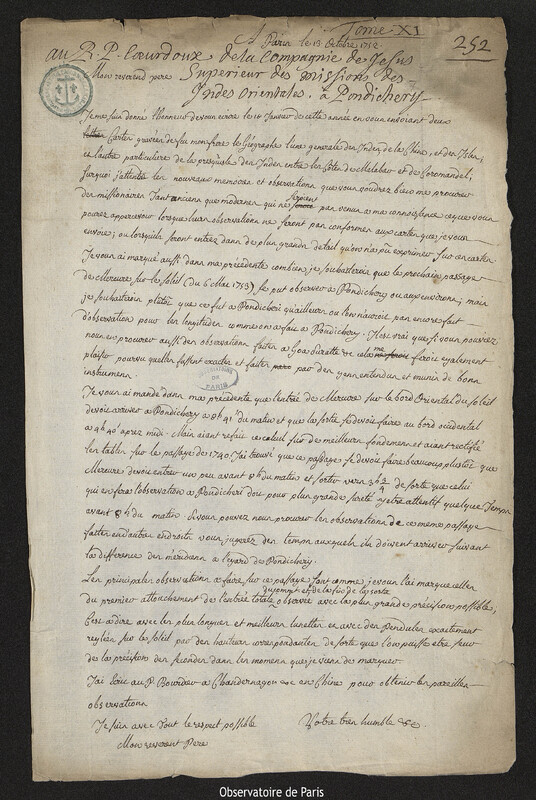 Tome XI
252
A Paris le 13 Octobre 1752
au R. P. Coeurdoux de la Compagnie de Jesus
Mon reverend pere Superieur des missions des
Indes Orientales, à Pondichery
Je me suis donné l'honneur de vous ecrire le 10 Janvier de cette année en vous envoiant deux
Cartes gravées de feu mon frere le Géographe l'une generale des Indes de la Chine, et des Isles,
et l'autre particuliere de la presqu'ile des Indes entre les côtes de Malabar et de Coromandel,
surquoi j'attens les nouveaux memoires et observations que vous voudrez bien me procurer
des missionaires tant anciens que modernes qui ne seroient pas venus a ma connoissance et que vous
pourez appercevoir lorsque leurs observations ne seront pas conformes aux cartes que je vous
envoie; ou lorsqu'ils seront entrez dans de plus grands details qu'on n'a pu exprimer sur ces cartes
Je vous ai marqué aussi dans ma précédente combien je souhaiterois que le prochain passage
de Mercure sur le soleil (du 6 Mai 1753), se put observer a Pondichery ou aux environs; mais
je souhaiterois plutôt que ce fut a Pondicheri qu'ailleurs ou l'on n'auroit pas encore fait
d'observations pour les longitudes comme on a fait a Pondichery. Il est vrai que si vous pouviez
nous en procurer aussi des observations faites a Goa Suratte &c cela me feroit egalement
plaisir pourvu qu'elles fussent exactes et faites par des gens entendus et munis de bons
instrumens.
OBSERVATOIRE DE PARIS
Je vous ai mandé dans ma precedente que l'entrée de Mercure sur le bord Oriental du soleil
devoit arriver a Pondichery a 8h 41' du matin et que la sortie se devoit faire au bord occidental
a 4h 40' aprez midi. Mais aiant refait ce calcul sur de meilleurs fondemens et aiant rectifié
les tables sur le passage de 1740. J'ai trouvé que ce passage se devoit faire beaucoup plustôt que
Mercure devoit entrer un peu avant 8h du matin et sortir vers 3h 3/4 de sorte que celui
qui en fera l'observation a Pondicheri doit pour plus grande sureté y etre attentif quelque temps
avant 8h du matin. Si vous pouvez nous procurer les observations de ce meme passage
faites en d'autres endroits vous jugerez des temps auxquels ils doivent arriver suivant
la difference des méridiens a l'egard de Pondichery.
Les principales observations a faire sur ce passage sont comme je vous l'ai marqué celles
du premier attouchement de l'entrée totale du commencement et de la fin de la sortie observée avec la plus grande précision possible,
C'est a dire avec les plus longues et meilleures lunettes et avec des Pendules exactement
reglées sur le soleil par des hauteurs correspondantes de sorte que l'on puisse etre sur
de la précision des secondes dans les momens que je viens de marquer
J'ai ecrit au P. Bourdeu a Chandernagor &c en Chine pour obtenir les pareilles
observations
Je suis avec tout le respect possible Votre bien humble &c
Mon reverent Pere
Observatoire de Paris